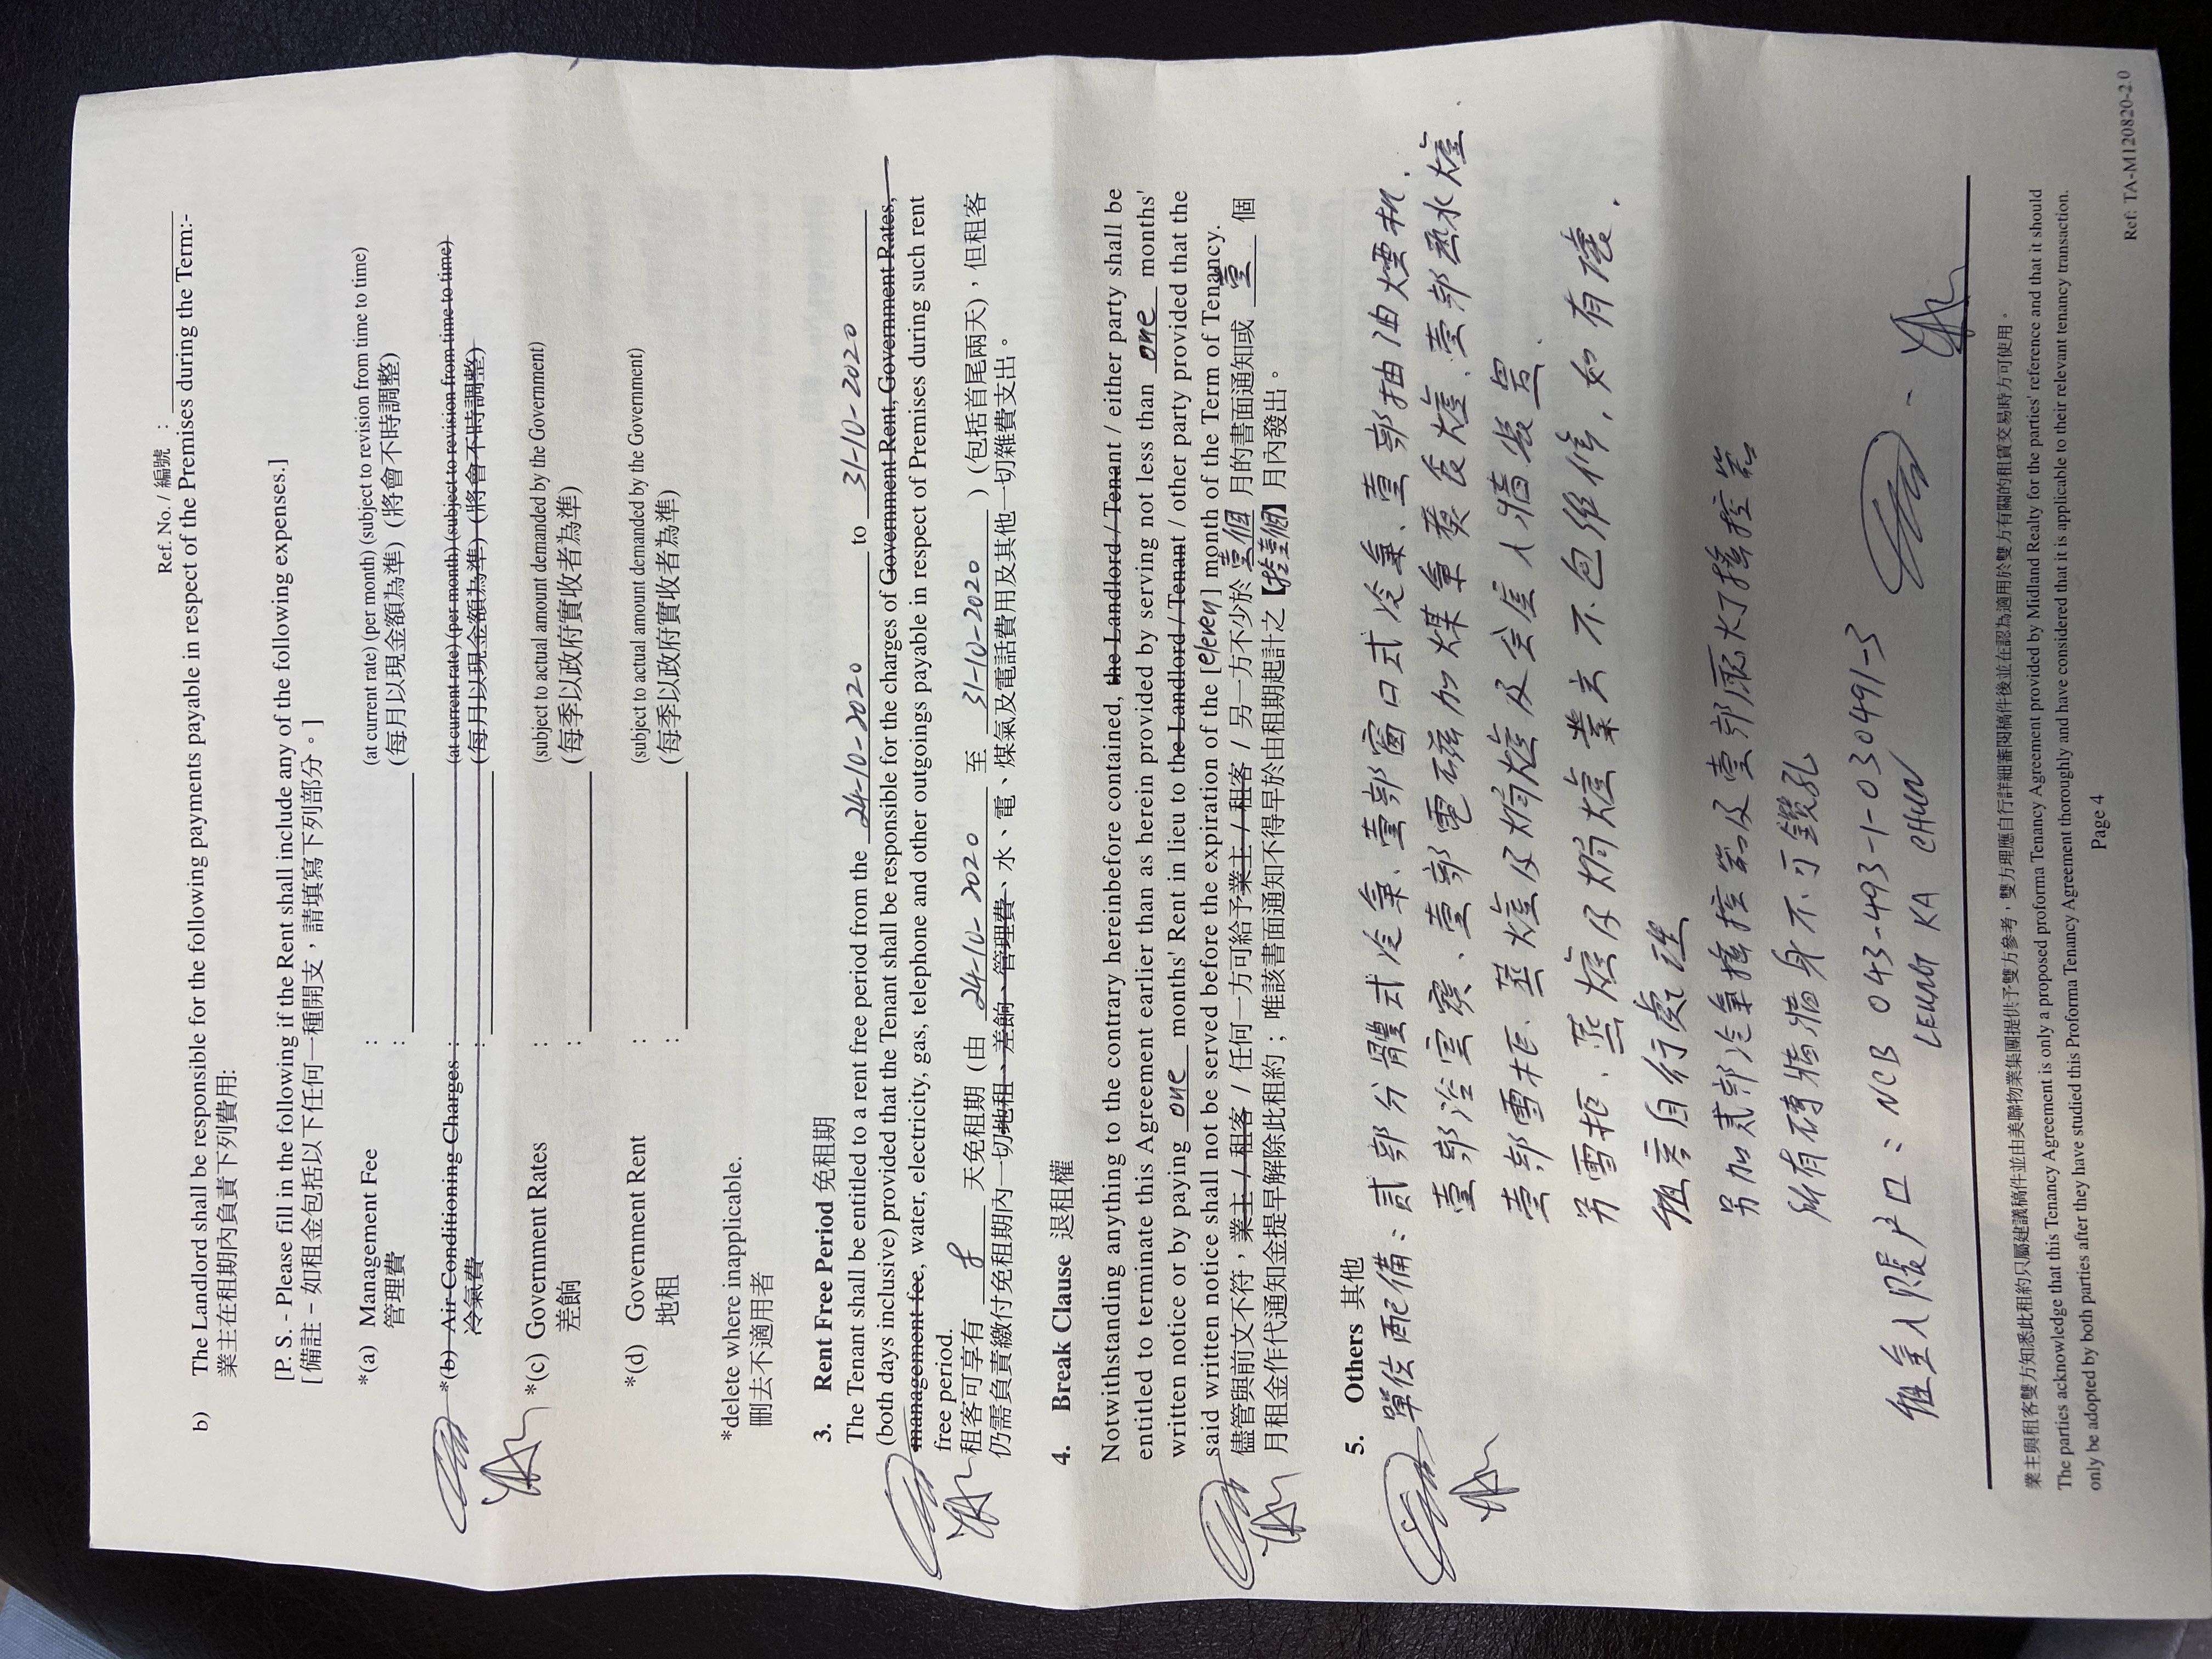 Ref. No. / 編號 :
b) The Landlord shall be responsible for the following payments payable in respect of the Premises during the Term:-
業主在租期內負責下列費用:
[P. S. - Please fill in the following if the Rent shall include any of the following expenses.]
[備註 - 如租金包括以下任何一種開支，請填寫下列部分。]
*(a) Management Fee : (at current rate) (per month) (subject to revision from time to time)
管理費 : (每月以現金額為準) (將會不時調整)
*(b) Air-Conditioning Charges : (at current rate) (per month) (subject to revision from time to time)
冷氣費 : (每月以現金額為準) (將會不時調整)
*(c) Government Rates : (subject to actual amount demanded by the Government)
差餉 : (每季以政府實收者為準)
*(d) Government Rent : (subject to actual amount demanded by the Government)
地租 : (每季以政府實收者為準)
*delete where inapplicable.
刪去不適用者
3. Rent Free Period 免租期
The Tenant shall be entitled to a rent free period from the 24-10-2020 to 31-10-2020
(both days inclusive) provided that the Tenant shall be responsible for the charges of Government Rent, Government Rates,
management fee, water, electricity, gas, telephone and other outgoings payable in respect of Premises during such rent
free period.
租客可享有 8 天免租期 (由 24-10-2020 至 31-10-2020 ) (包括首尾兩天)，但租客
仍需負責繳付免租期內一切地租、差餉、管理費、水、電、煤氣及電話費用及其他一切雜費支出。
4. Break Clause 退租權
Notwithstanding anything to the contrary hereinbefore contained, the Landlord / Tenant / either party shall be
entitled to terminate this Agreement earlier than as herein provided by serving not less than one months'
written notice or by paying one months' Rent in lieu to the Landlord / Tenant / other party provided that the
said written notice shall not be served before the expiration of the [eleven] month of the Term of Tenancy.
儘管與前文不符，業主 / 租客 / 任何一方可給予業主 / 租客 / 另一方不少於 壹個 月的書面通知或 壹 個
月租金作代通知金提早解除此租約；唯該書面通知不得早於由租期起計之【拾壹個】月內發出。
5. Others 其他
單位配備：貳部分體式冷氣、壹部窗口式冷氣、壹部抽油煙机、
壹部浴室寶、壹部電磁加煤氣煮食爐、壹部熱水爐
壹部雪柜、蒸爐及焗爐及全屋入牆裝置.
另雪柜、蒸爐及焗爐業主不包維修，如有壞，
租客自行處理
另加貳部冷氣搖控器及壹部廳灯搖控器
所有磚牆牆身不可鑽孔
租金入賬户口：NCB 043-493-1-030491-3
LEUNG KA CHUN
業主與租客雙方知悉此租約只屬建議稿件並由美聯物業集團提供予雙方參考，雙方理應自行詳細審閱稿件後並在認為適用於雙方有關的租賃交易時方可使用。
The parties acknowledge that this Tenancy Agreement is only a proposed proforma Tenancy Agreement provided by Midland Realty for the parties' reference and that it should
only be adopted by both parties after they have studied this Proforma Tenancy Agreement thoroughly and have considered that it is applicable to their relevant tenancy transaction.
Page 4
Ref: TA-M120820-2.0